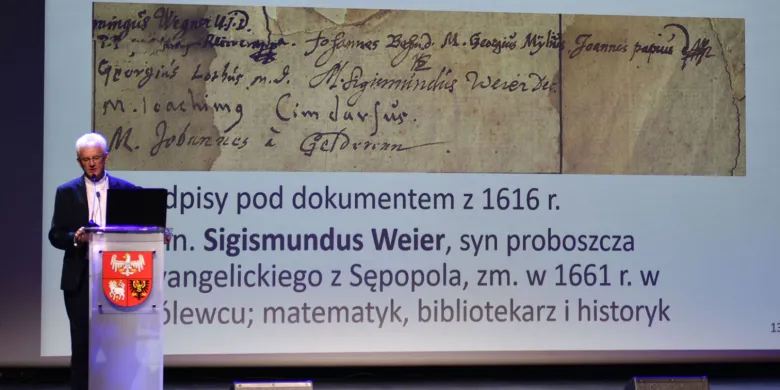 mingus Wegner U.J.D.
Johannes Behnd. M. Georgius Mylius Joannes papius
Georgius Lothus m.d. M. Sigismundus Weier Dec.
M. Ioachimg Cimdarsus.
M. Johannes à Gelderen
dpisy pod dokumentem z 1616 r.
in. Sigismundus Weier, syn proboszcza
vangelickiego z Sępopola, zm. w 1661 r. w
ólewcu; matematyk, bibliotekarz i historyk
13